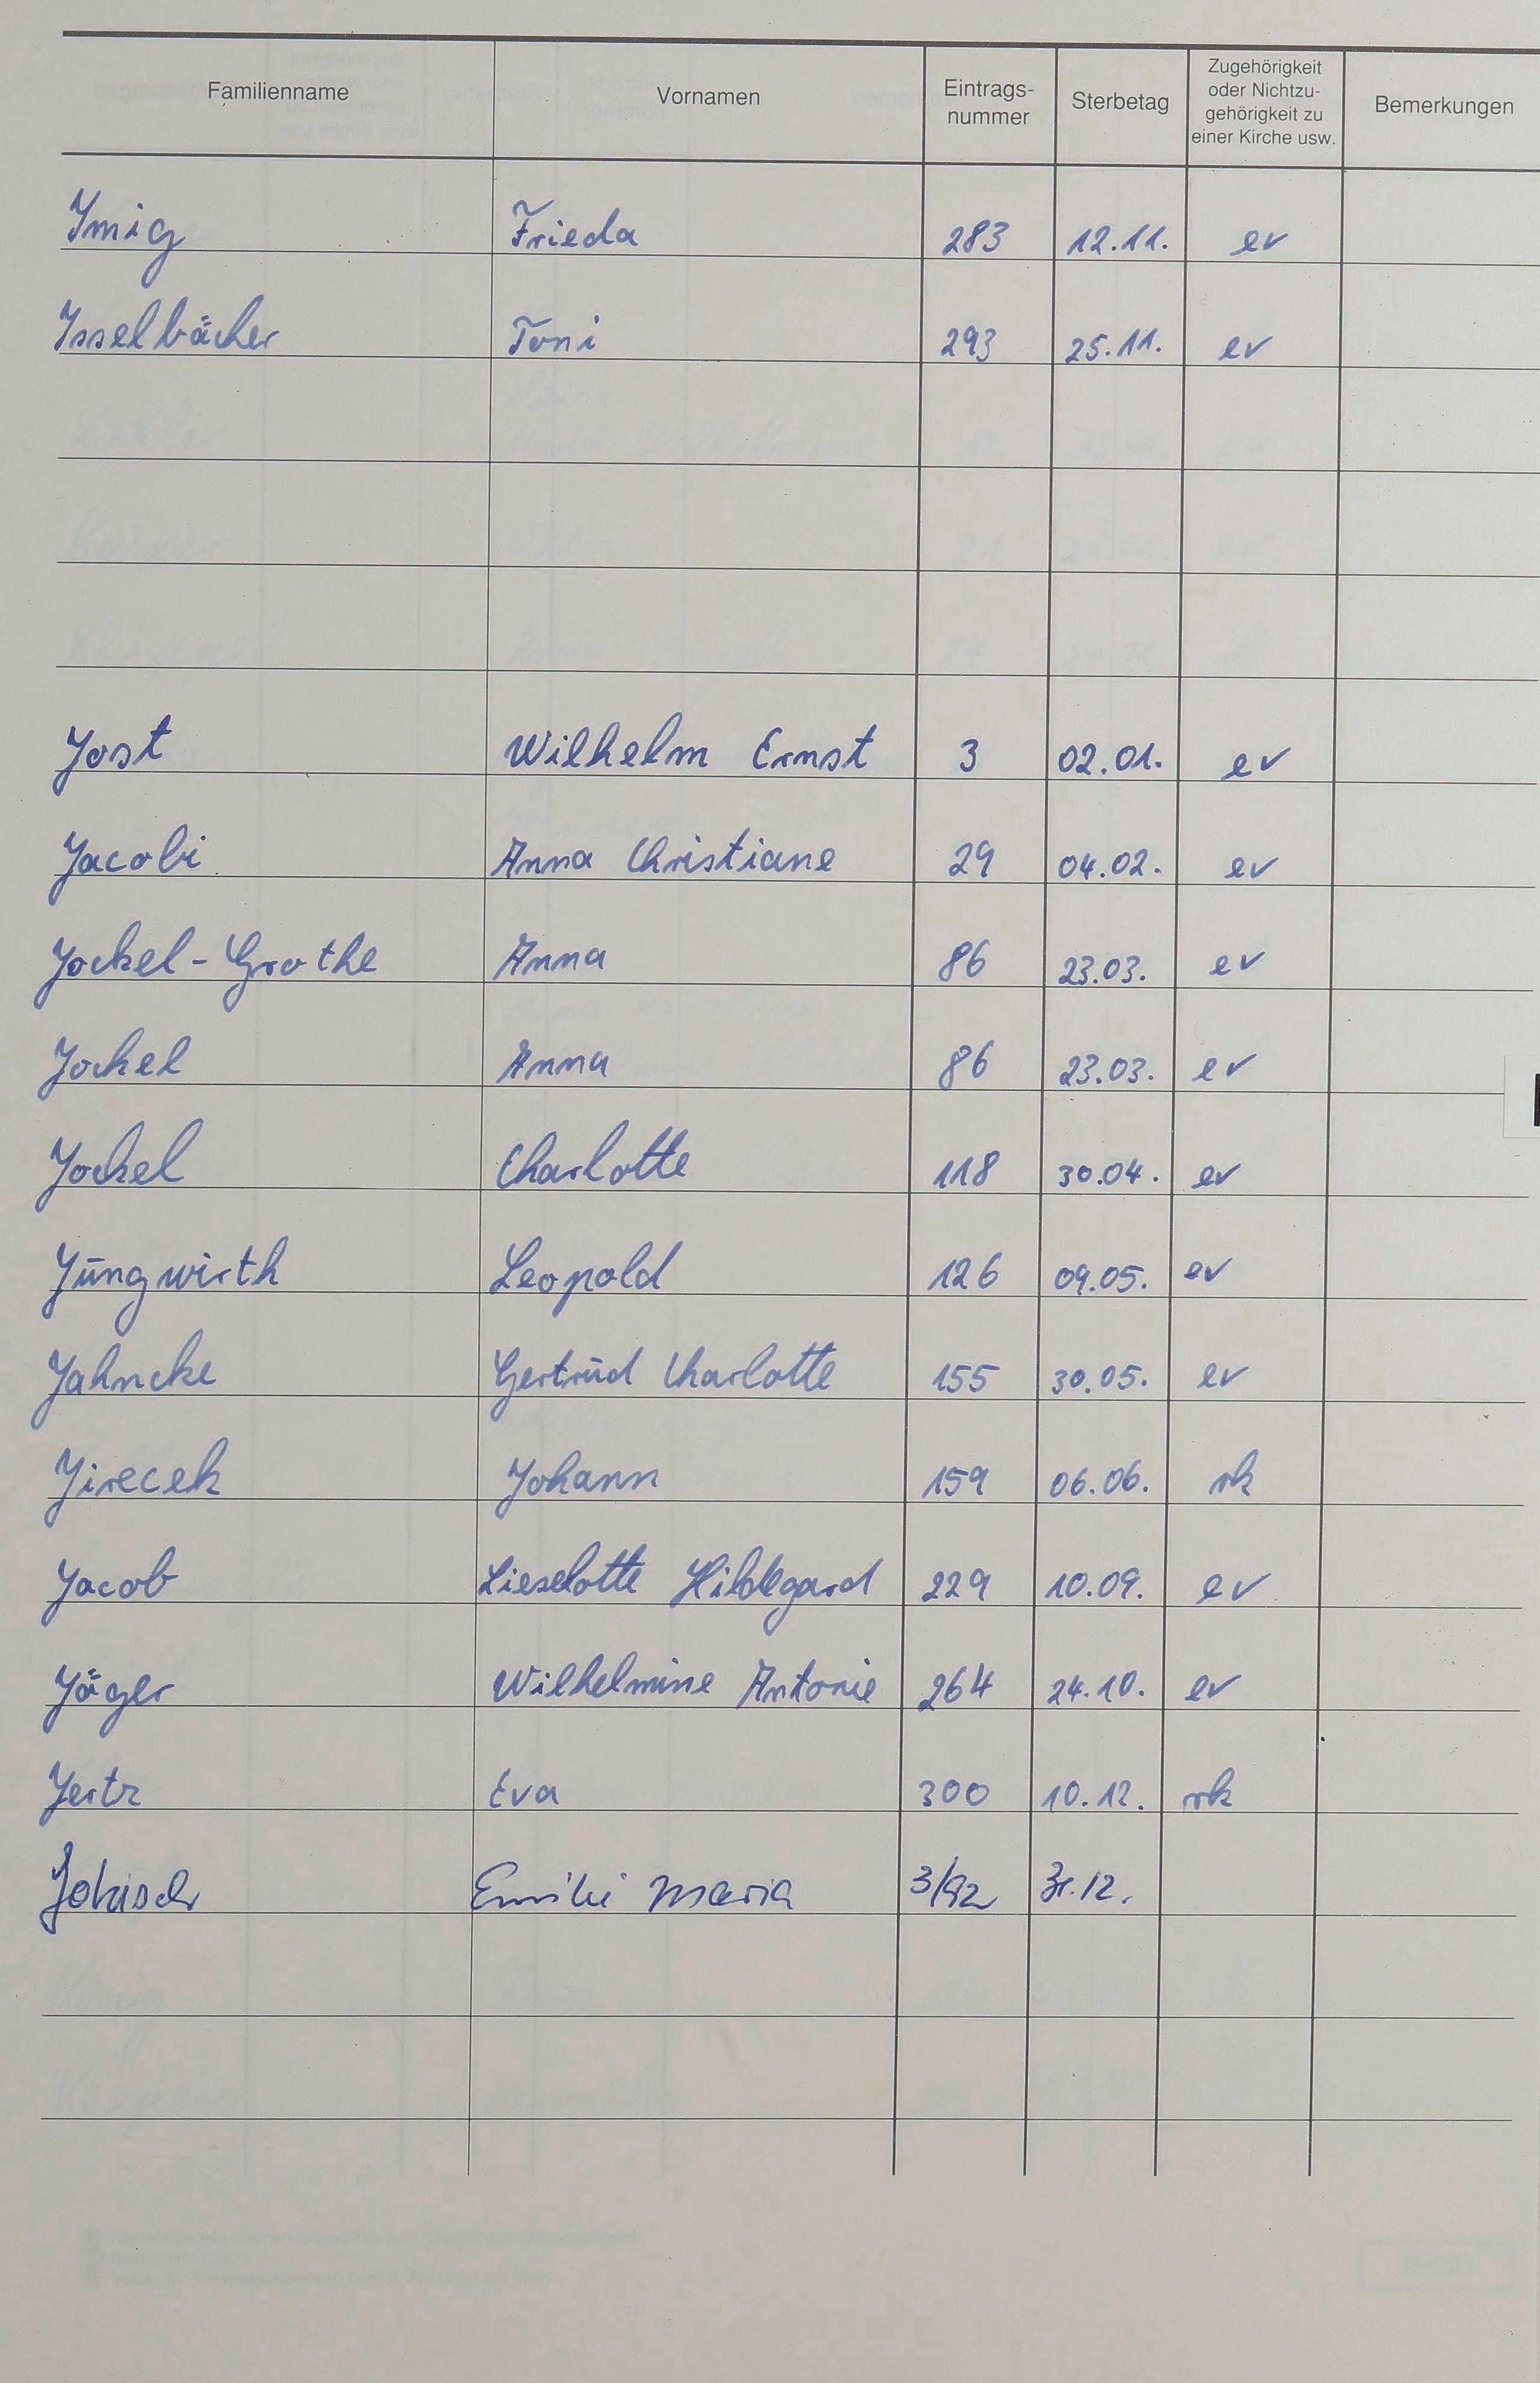 Familienname Vornamen Eintrags-nummer Sterbetag Zugehörigkeit oder Nichtzu-gehörigkeit zu einer Kirche usw. Bemerkungen
Imig Frieda 283 12.11. ev
Isselbächer Toni 293 25.11. ev
Jost Wilhelm Ernst 3 02.01. ev
Jacobi Anna Christiane 29 04.02. ev
Jockel-Grothe Anna 86 23.03. ev
Jockel Anna 86 23.03. ev
Jockel Charlotte 118 30.04. ev
Jungwirth Leopold 126 09.05. ev
Jahncke Gertrud Charlotte 155 30.05. ev
Jirecek Johann 159 06.06. rk
Jacob Lieselotte Hildegard 229 10.09. ev
Jäger Wilhelmine Antonie 264 24.10. ev
Jertz Eva 300 10.12. rk
Jokisch Emilie Maria 3/92 31.12.